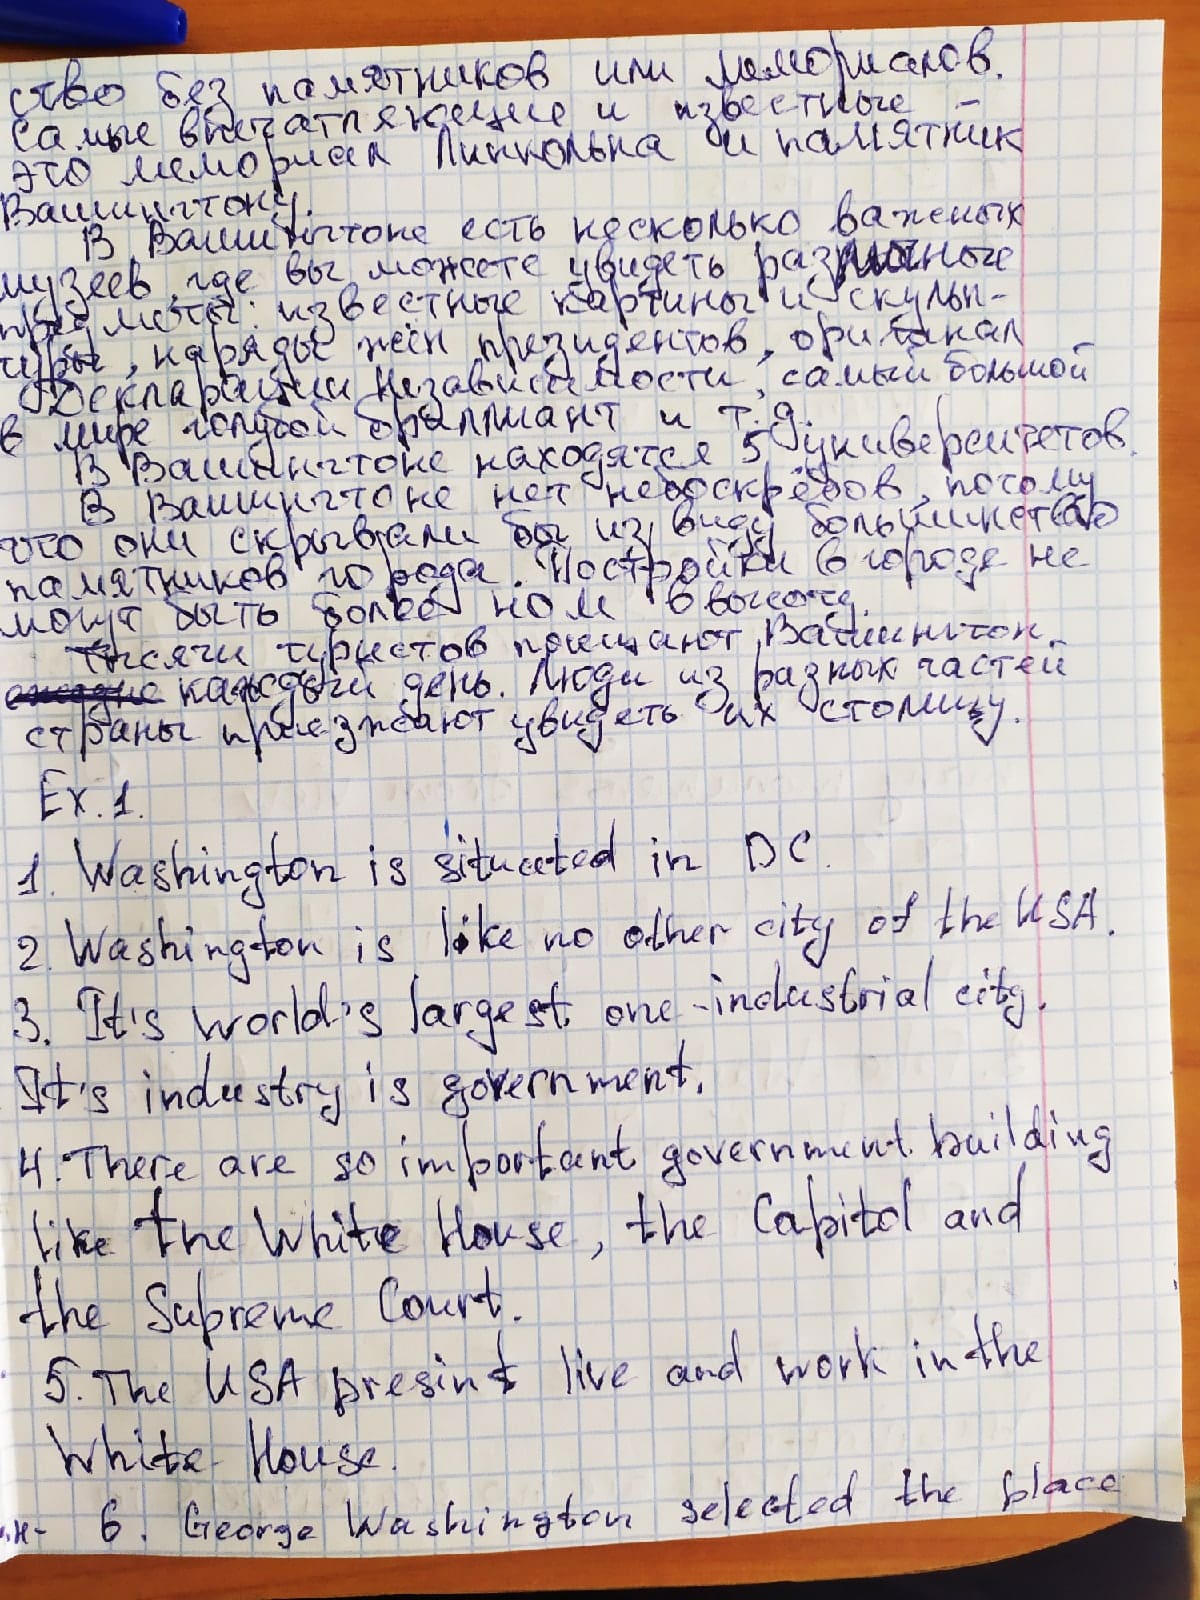 ство без памятников или мемориалов.
Самые впечатляющие и известные -
это мемориал Линкольна и памятник
Вашингтону.
В Вашингтоне есть несколько важных
музеев, где вы можете увидеть различные
предметы: известные картины и скульп-
туры, наряды жён президентов, оригинал
Декларации Независимости, самый большой
в мире голубой бриллиант и т.д.
В Вашингтоне находятся 5 университетов.
В Вашингтоне нет небоскрёбов, потому
что они скрывали бы из виду большинство
памятников города. Постройки в городе не
могут быть более 40 м в высоту.
Тысячи туристов посещают Вашингтон
каждый день. Люди из разных частей
страны приезжают увидеть их столицу.
Ex. 1.
1. Washington is situated in DC.
2. Washington is like no other city of the USA.
3. It's world's largest one-industrial city.
It's industry is government.
4. There are so important government building
like the White House, the Capitol and
the Supreme Court.
5. The USA presint live and work in the
White House.
6. George Washington selected the place